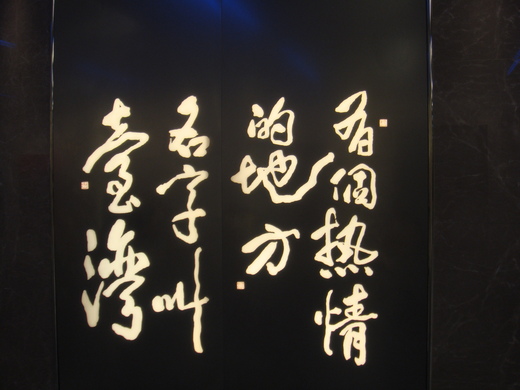 有個热情
的地方
名字叫
臺灣